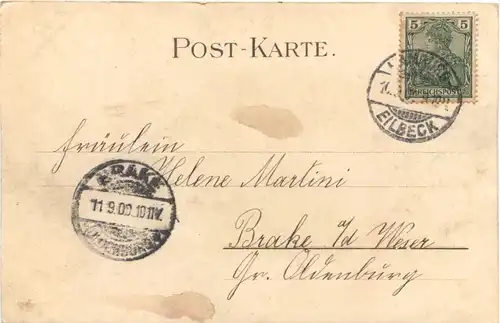 POST-KARTE.
5 5
REICHSPOST
EILBECK
Fräulein
Helene Martini
Brake a/d Weser
Gr. Oldenburg
BRAKE
11.9.00.10-11V.
OLDENBURG